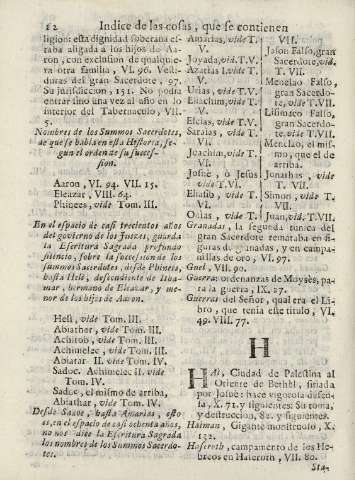 12 Indice de las cosas, que se contienen
ligion: esta dignidad soberana es-
taba aligada à los hijos de Aa-
ron, con exclusion de qualquie-
ra otra familia, VI. 96. Vesti-
duras del gran Sacerdote, 97.
Su jurisdiccion, 131. No podia
entrar sino una vez al año en lo
interior del Tabernaculo, VII.
5.
Nombres de los Summos Sacerdotes,
de que se habla en esta Historia, se-
gun el orden de su succes-
sion.
Aaron, VI. 94. VII. 15.
Eleazar, VIII. 64.
Phinees, vide Tom. III.
En el espacio de casi trecientos años
del govierno de los Jueces, guarda
la Escritura Sagrada profundo
silencio, sobre la succession de los
summos Sacerdotes, desde Phineès,
hasta Helì, descendiente de Itha-
mar, hermano de Eleazar, y me-
nor de los hijos de Aaron.
Heli, vide Tom. III.
Abiathor, vide Tom. III.
Achitob, vide Tom. III.
Achimelec, vide Tom. III.
Abiatar II. vide Tom. IV.
Sadoc. Achimelec II. vide
Tom. IV.
Sadoc, el mismo de arriba,
Abiathar, vide Tom. IV.
Desde Sadoc, hasta Amarias, esto
es, en el espacio de casi ochenta años,
no nos dice la Escritura Sagrada
los nombres de los Summos Sacerdo-
tes.
Amarias, vide T.
V.
Joyada, vid. T.V.
Azarias I. vide T.
V.
Urias, vide T. V.
Eliachim, vide T.
V.
Elcias, vide T. V.
Saraias, vide T.
VI.
Joachim, vide T.
VI.
Josuè, ò Jesus
vide T.VI.
Eliasib, vide T.
VI.
Onias, vide T.
VII.
Jason Falso, gran
Sacerdote, vid.
T. VII.
Menelao Falso,
gran Sacerdo-
te, vide T. VII.
Lisimaco Falso,
gran Sacerdo-
te, vide T. VII.
Menelao, el mis-
mo, que el de
arriba.
Jonathas, vide
T. VII.
Simon, vide T.
VII.
Juan, vid. T.VII.
Granadas, la segunda tunica del
gran Sacerdote remataba en fi-
guras de granadas, y en campa-
nillas de oro, VI. 97.
Guel, VII. 90.
Guerra: ordenanzas de Moysès, pa-
ra la guerra, IX. 27.
Guerras del Señor, qual era el Li-
bro, que tenia este titulo, VI.
49. VIII. 77.
H
HAi, Ciudad de Palestina al
Oriente de Bethèl, sitiada
por Josuè: hace vigorosa defen-
sa, X. 71. y siguientes: Su toma,
y destruccion, 82. y siguientes.
Haiman, Gigante monstruoso, X.
132.
Haseroth, campamento de los He-
breos en Haseroth, VII. 80.